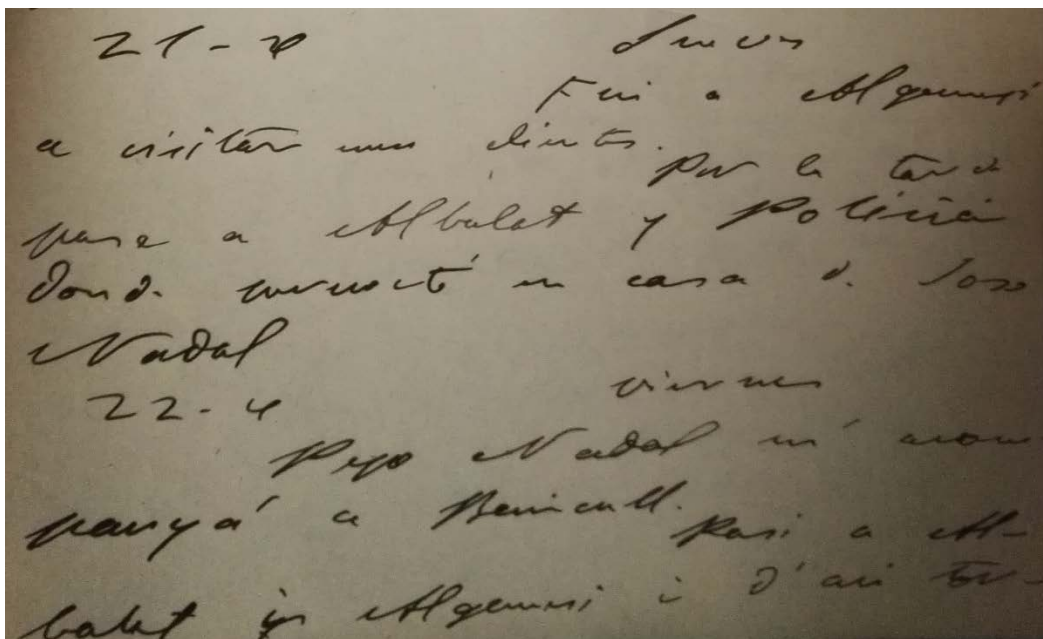 21-4 Jueves
Fui a Algemesi
a visitar unos clientes.
Por la tarde
pase a Albalat y Poliñá
donde pernocté en casa de Jose
Nadal
22-4 viernes
Pepe Nadal m' acom
panyá a Benicull.
Pasi a Al-
balat Algemesi i d' aci